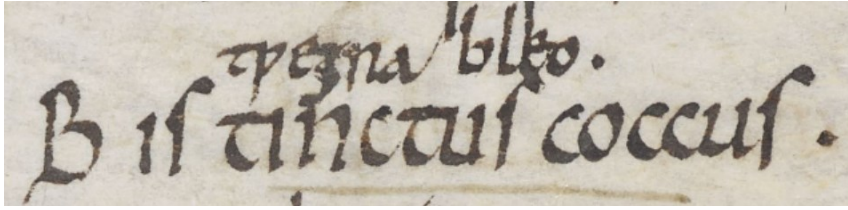 tƿegra bleo.
Bis tinctus coccus.